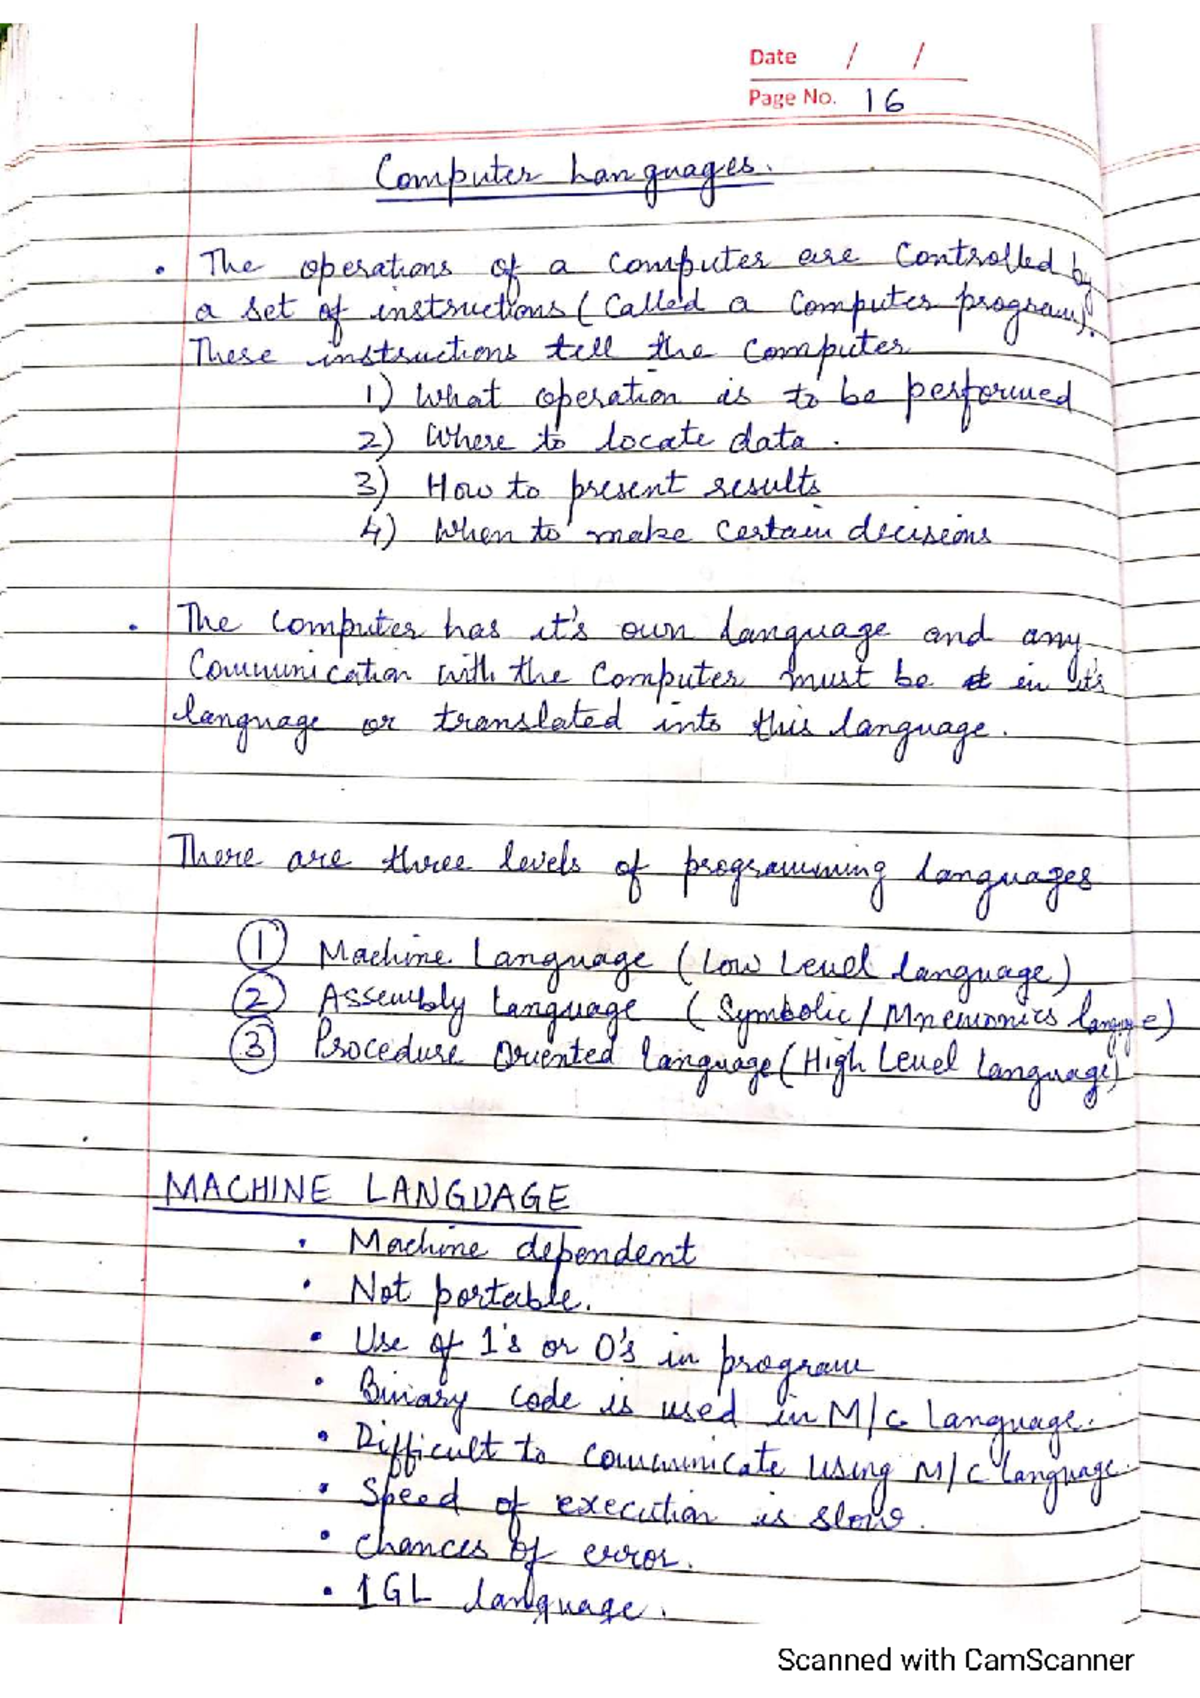 Date / /
Page No. 16
Computer Languages.
• The operations of a computer are controlled by
a set of instructions (called a computer program).
These instructions tell the computer
1) What operation is to be performed
2) Where to locate data.
3) How to present results
4) When to make certain decisions
• The computer has it's own language and any
communication with the computer must be in it's
language or translated into this language.
There are three levels of programming languages
① Machine Language (Low Level language)
② Assembly Language (Symbolic/Mnemonics language)
③ Procedure Oriented language (High Level language)
MACHINE LANGUAGE
• Machine dependent
• Not portable.
• Use of 1's or 0's in program
• Binary code is used in M/c language.
• Difficult to communicate using M/c language.
• Speed of execution is slow.
• chances of error.
• 1GL language.
Scanned with CamScanner